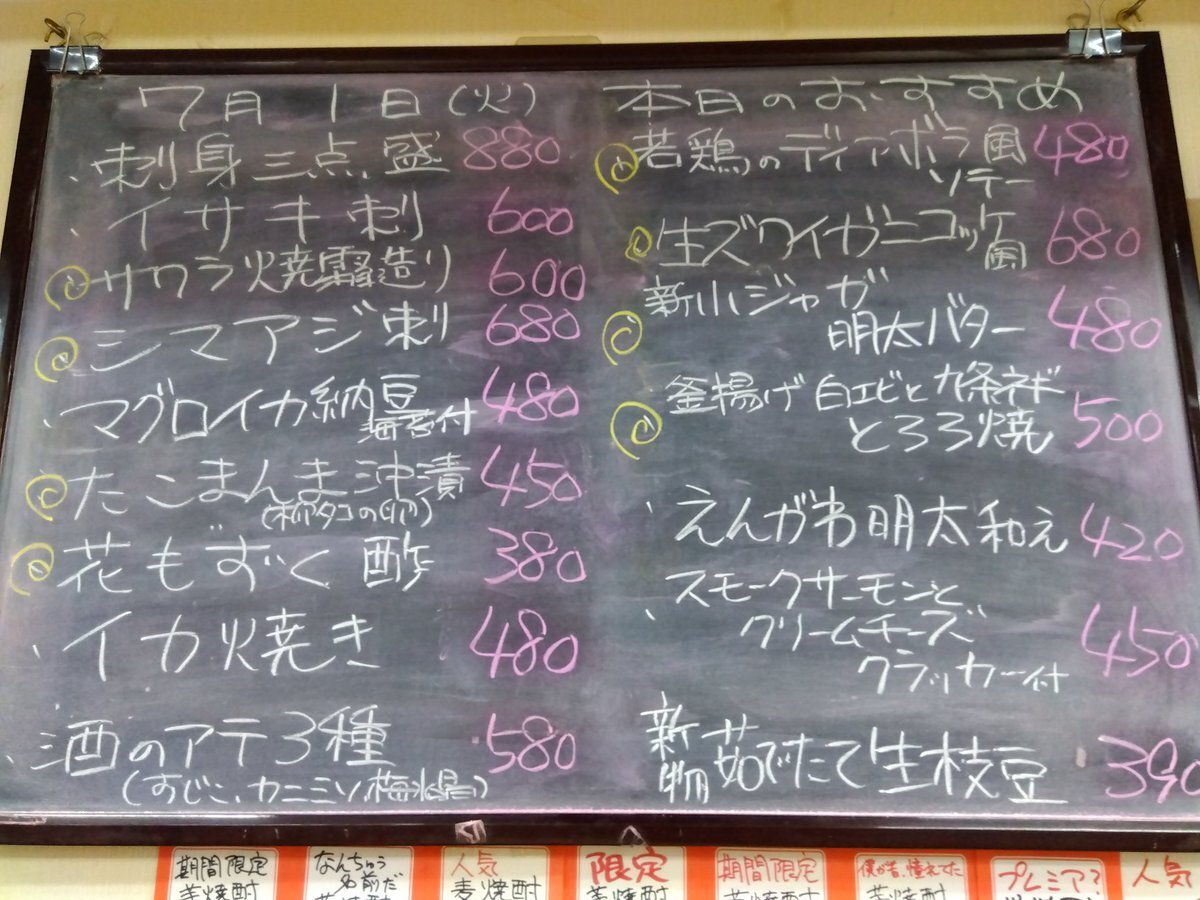 7月1日(火)
刺身三点盛 880
イサキ刺 600
サワラ焼霜造り 600
シマアジ刺 680
マグロイカ納豆 480
海苔付
たこまんま沖漬 450
(柳タコの卵)
花もずく酢 380
イカ焼き 480
酒のアテ3種 580
(すじこ、カニミソ、梅水晶)
本日のおすすめ
若鶏のディアボラ風 480
ソテー
生ズワイガニコロッケ 680
風
新小ジャガ
明太バター 480
釜揚げ白エビと九条ネギ
とろろ焼 500
えんがわ明太和え 420
スモークサーモンと
クリームチーズ 450
クラッカー付
新物 茹でたて生枝豆 390
期間限定
芋焼酎
なんちゅう
名前だ
人気
麦焼酎
限定
期間限定
プレミア?
人気